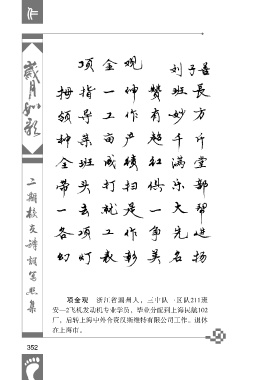 作
岁月如歌
二期校友诗词写照集
项金观
刘子喜
拇指一伸赞班长
领导工作有妙方
种菜亩产超千斤
全班成绩红满堂
带头打扫俱乐部
一去就是一大帮
各项工作争先进
幻灯表彰美名扬
项金观 浙江省湖州人，三中队一区队211班
安—2飞机发动机专业学员，毕业分配到上海民航102
厂，后转上海中外合资汉斯维特有限公司工作。退休
在上海市。
352